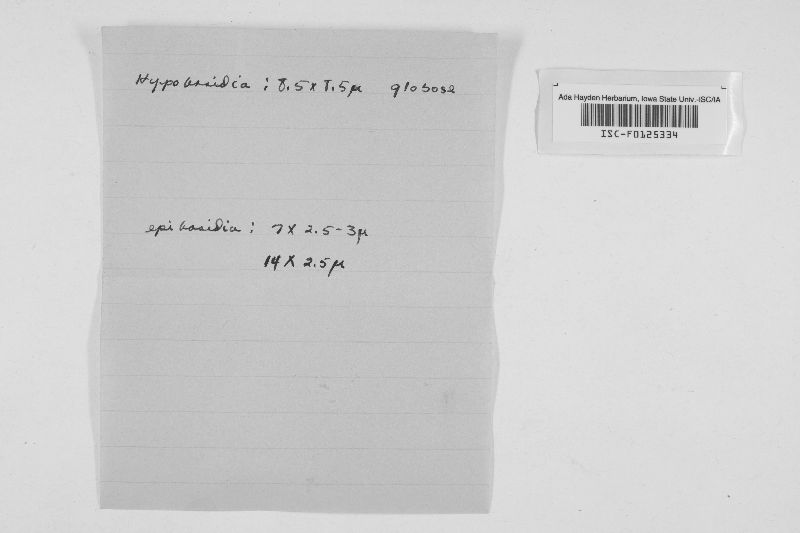 Hypobasidia : 8.5 x 8.5μ globose
epibasidia : 7 x 2.5-3μ
14 x 2.5μ
Ada Hayden Herbarium, Iowa State Univ.-ISC/IA
ISC-F0125334